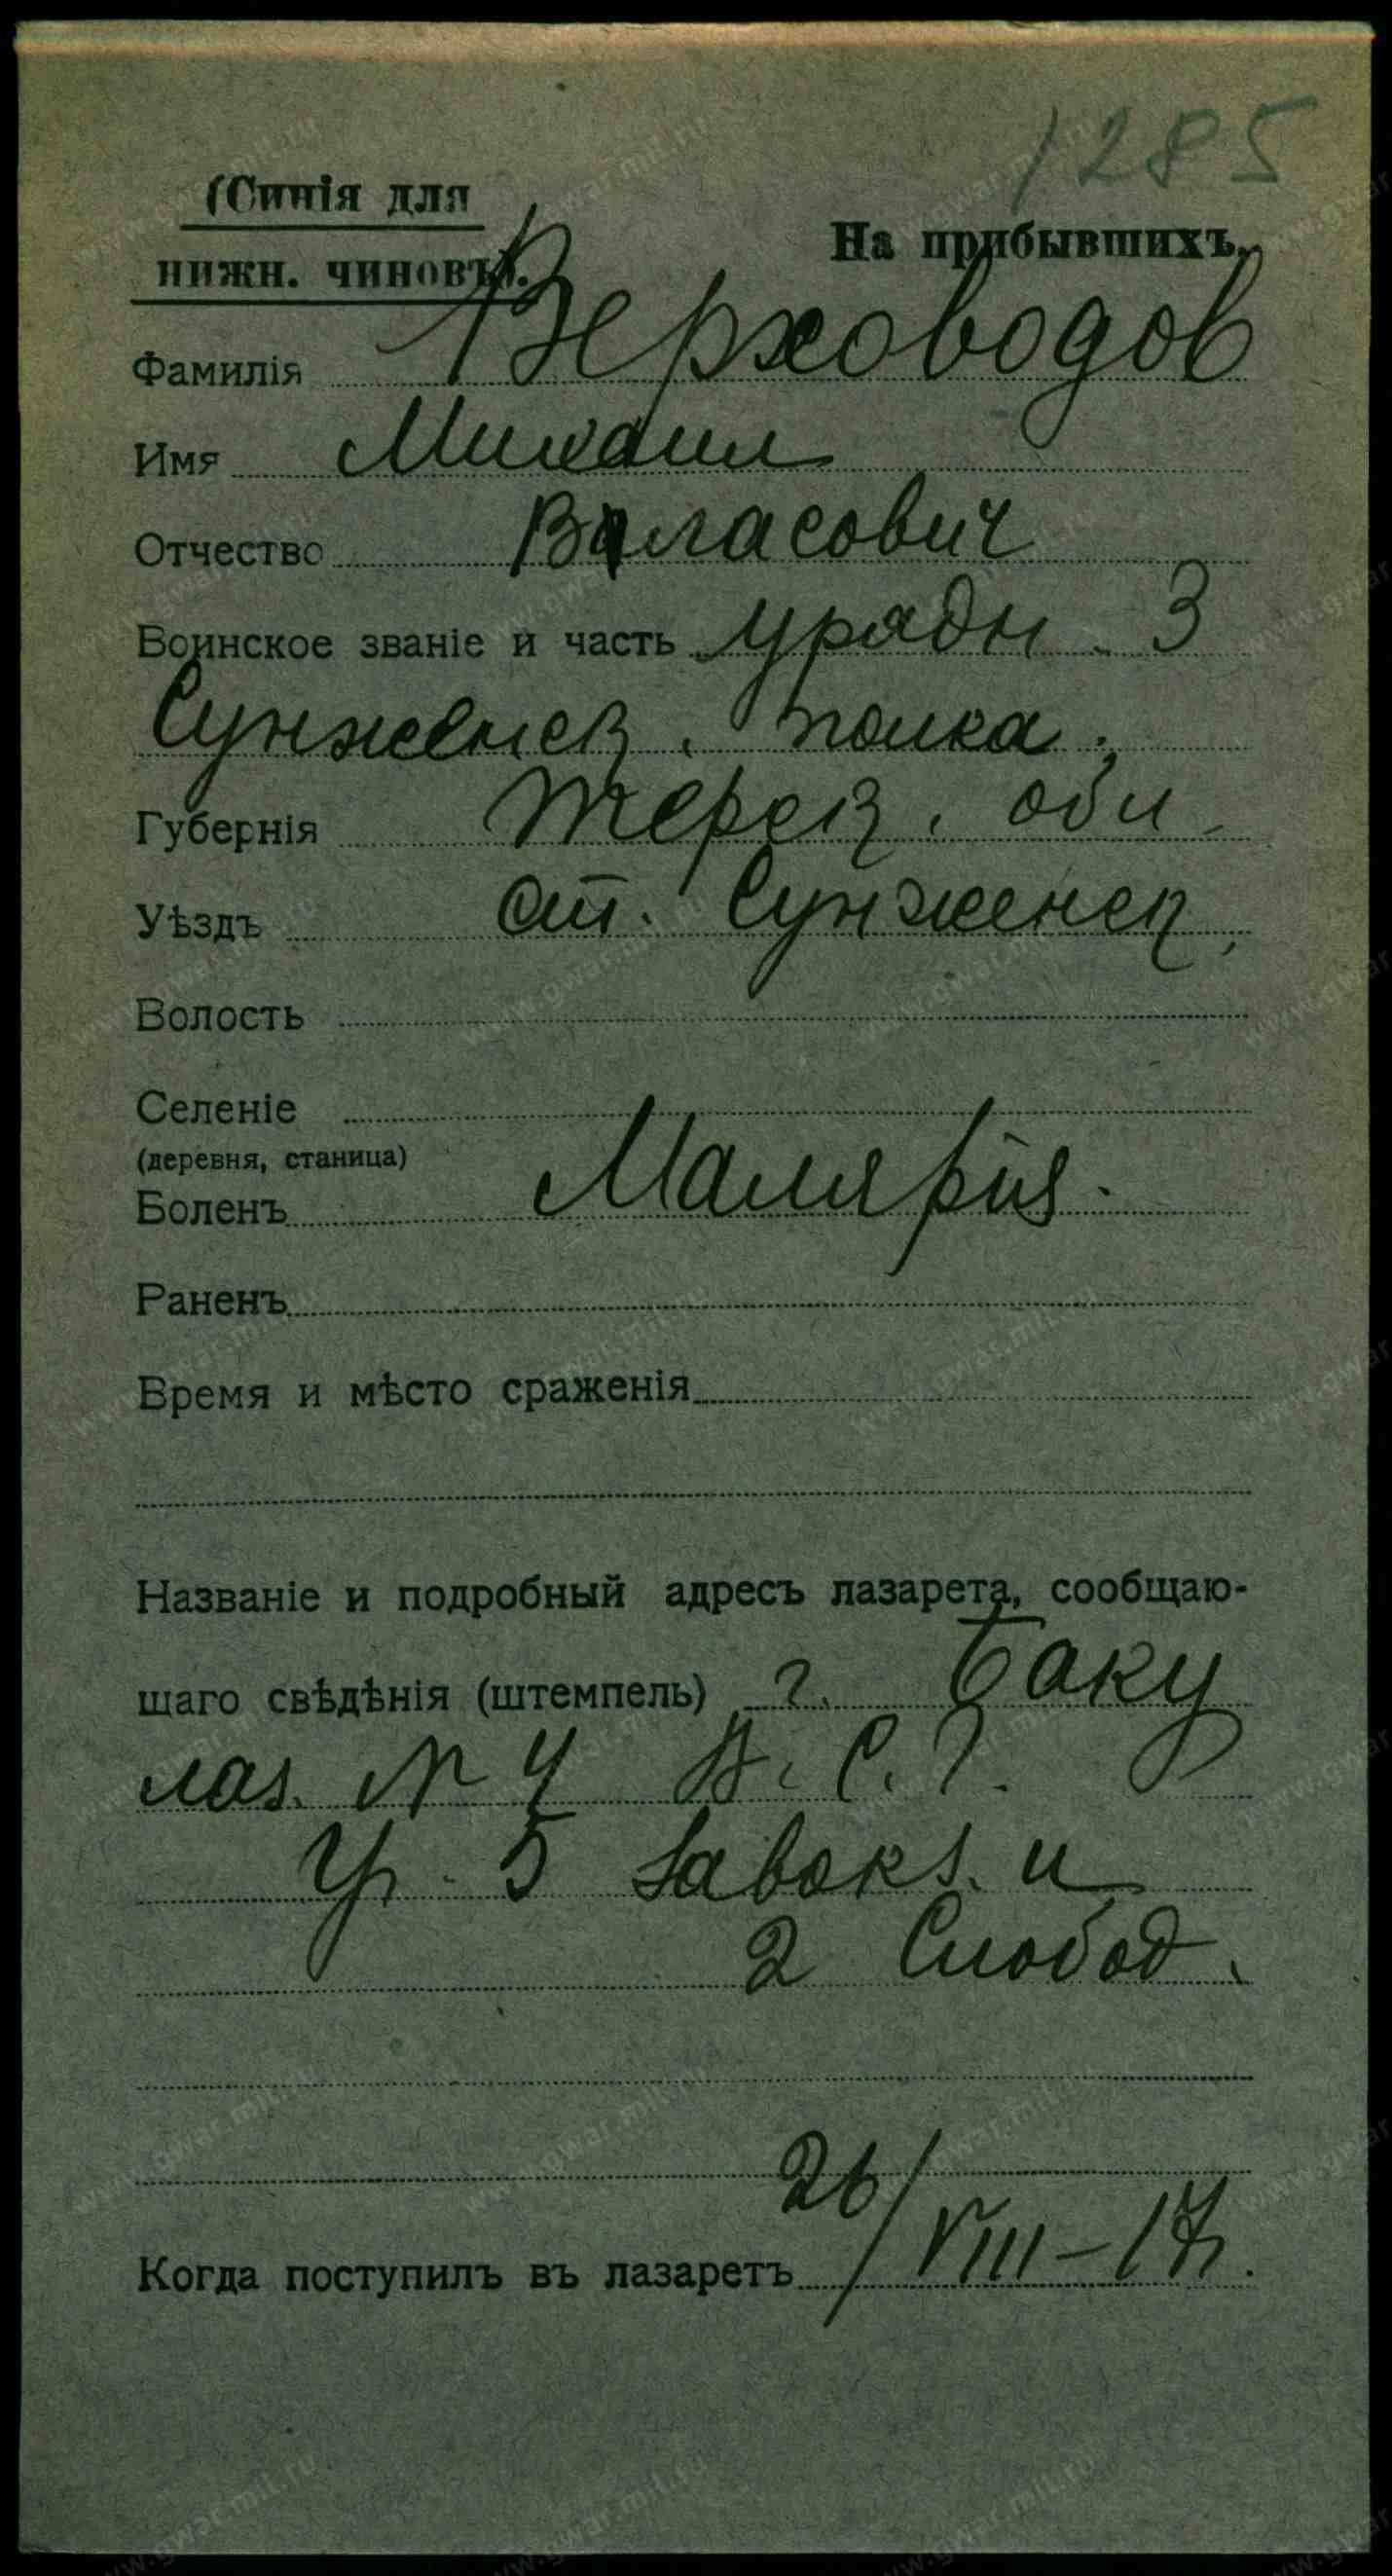 1285
(Синія для
нижн. чиновъ).
На прибывшихъ.
Фамилія Верховодов
Имя Михаил
Отчество Власович
Воинское званіе и часть урядн. 3
Сунженск. полка.
Губернія Терск. обл.
Уѣздъ ст. Сунженск.
Волость
Селеніе
(деревня, станица)
Боленъ Малярія.
Раненъ
Время и мѣсто сраженія
Названіе и подробный адресъ лазарета, сообщаю-
щаго свѣдѣнія (штемпель) г. Баку
лаз. № 4 В. С. Г.
Уг. 5 Завокз. и
2 Слобод.
Когда поступилъ въ лазаретъ 26/VIII-17.